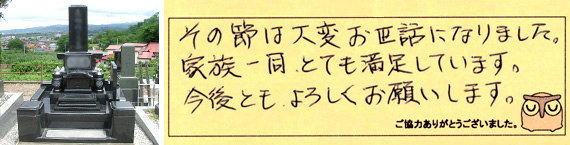 その節は大変お世話になりました。
家族一同、とても満足しています。
今後とも、よろしくお願いします。
ご協力ありがとうございました。